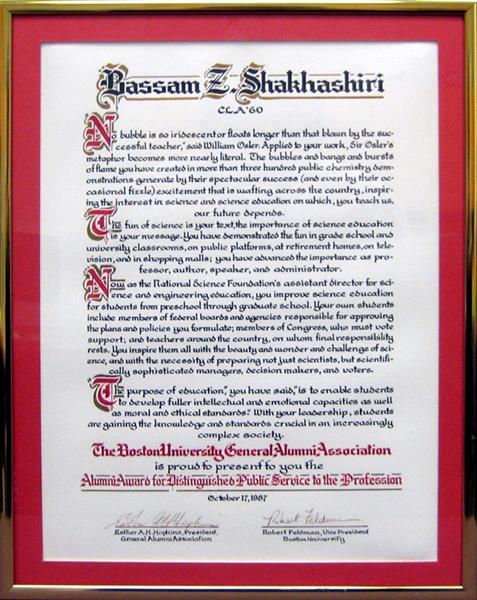 Bassam Z. Shakhashiri
CLA'60
No bubble is so iridescent or floats longer than that blown by the suc-
cessful teacher," said William Osler. Applied to your work, Sir Osler's
metaphor becomes more nearly literal. The bubbles and bangs and bursts
of flame you have created in more than three hundred public chemistry dem-
onstrations generate by their spectacular success (and even by their oc-
casional fizzle) excitement that is wafting across the country, inspir-
ing the interest in science and science education on which, you teach us,
our future depends.
The fun of science is your text, the importance of science education
is your message. You have demonstrated the fun in grade school and
university classrooms, on public platforms, at retirement homes, on tele-
vision, and in shopping malls; you have advanced the importance as pro-
fessor, author, speaker, and administrator.
Now as the National Science Foundation's assistant director for sci-
ence and engineering education, you improve science education
for students from preschool through graduate school. Your own students
include members of federal boards and agencies responsible for approving
the plans and policies you formulate; members of Congress, who must vote
support; and teachers around the country, on whom final responsibility
rests. You inspire them all with the beauty and wonder and challenge of sci-
ence, and with the necessity of preparing not just scientists, but scientifi-
cally sophisticated managers, decision makers, and voters.
"The purpose of education," you have said, "is to enable students
to develop fuller intellectual and emotional capacities as well
as moral and ethical standards." With your leadership, students
are gaining the knowledge and standards crucial in an increasingly
complex society.
The Boston University General Alumni Association
is proud to present to you the
Alumni Award for Distinguished Public Service to the Profession
October 17, 1987
Robert Feldman
Esther A.H. Hopkins, President,
General Alumni Association
Robert Feldman, Vice President
Boston University